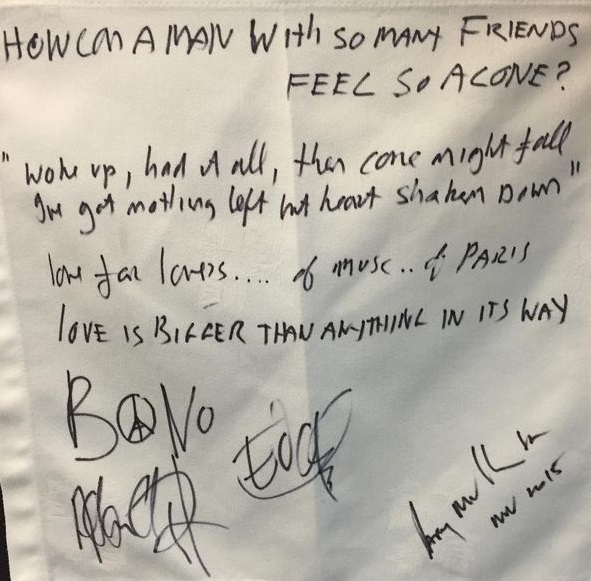 HOW CAN A MAN WITH SO MANY FRIENDS
FEEL SO ALONE?
"woke up, had it all, then come night fall
I've got nothing left but heart shaken DOWN"
love for lovers.... of music.. of PARIS
LOVE IS BIGGER THAN ANYTHING IN ITS WAY
BONO
EDGE
Adam
Larry Mullen Jr
nov 2015